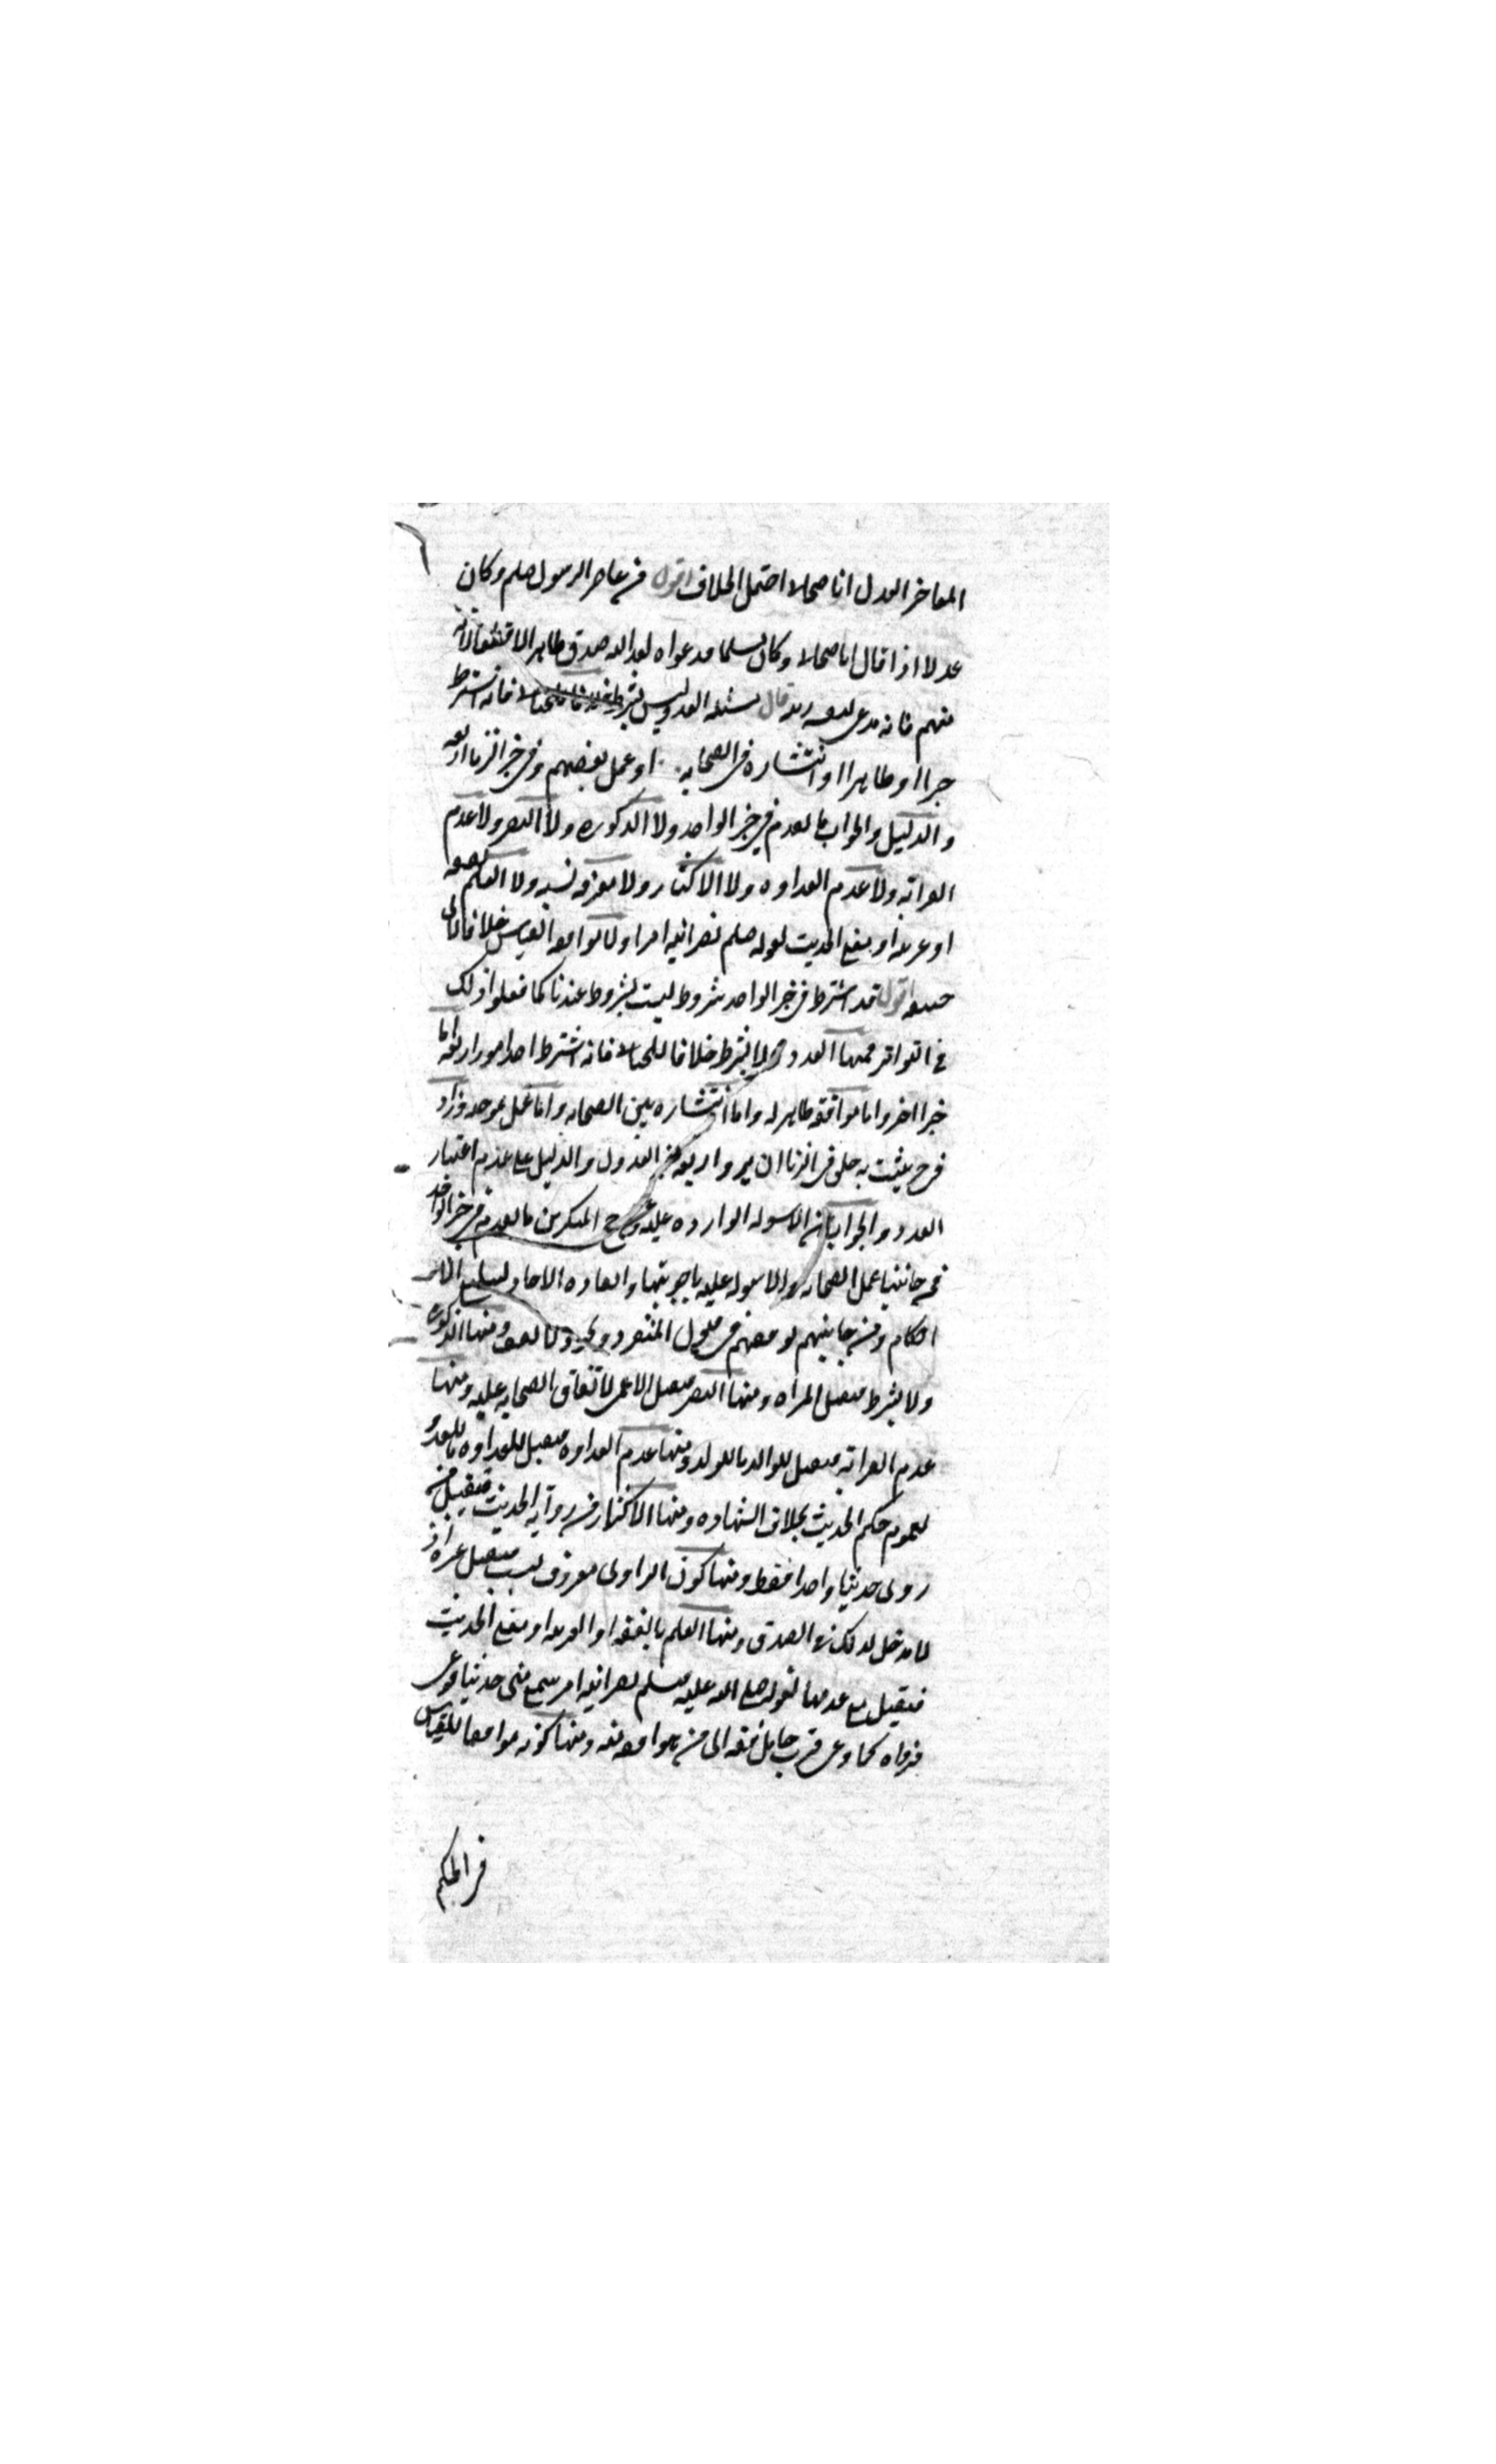 المعاصر العدل انا صحابي احتمل الخلاف اقول من عاصر الرسول صلعم وكان
عدلا اذا قال انا صحابي وكان مسلما فدعواه لعدالته صدق ظاهرا لا قطعا لانه
متهم فانه مدعي لنفسه رتبة قال مسئلة العدد ليس بشرط خلافا للجبائي فانه اشترط
خبرا او ظاهرا او انتشاره في الصحابه او عمل بعضهم وفي خبر الزنا اربعه
والدليل والجواب ما تقدم في خبر الواحد ولا الذكوره ولا البصر ولا عدم
القرابه ولا عدم العداوه ولا الاكثار ولا معرفه نسبه ولا العلم بفقه
او عربيه او بمعنى الحديث لقوله صلعم نضر الله امرا ولا موافقه القياس خلافا لابي
حنيفه اقول قد اشترط في خبر الواحد شروط ليست بشروط عندنا كما فعلوا ذلك
في التواتر فمنها العدد ولا يشترط خلافا للجبائي فانه اشترط احد امور اربعه اما
خبرا اخر واما موافقه ظاهر له واما انتشاره بين الصحابه واما عمل بموجبه وزاد
في ح يثبت به حكم في الزنا ان يرويه اربعه من العدول والدليل على عدم اعتبار
العدد والجواب الاسوله الوارده عليه وحجج المنكرين ما تقدم في خبر الواحد
من جانبنا عمل الصحابه والاسوله عليه باجوبتها وانفاذه الاحاد لتبليغ الا
حكام ومن جانبهم توقفهم في قبول المنفرد ولا تقف ومنها الذكوره
ولا يشترط فيقبل المراه ومنها البصر فيقبل الاعمى لاتفاق الصحابه عليه ومنها
عدم القرابه فيقبل للوالد ما للولد ومنها عدم العداوه فيقبل للعداوه ما للعدو
لعموم حكم الحديث بخلاف الشهاده ومنها الاكثار من روايه الحديث فيقبل من
روى حديثا واحدا فقط ومنها كون الراوى معروف النسب فيقبل غيره اذ
لا مدخل لذلك في الصدق ومنها العلم بالفقه او العربيه او معنى الحديث
فيقبل مع عدمها لقوله صلى الله عليه وسلم نضر الله امر سمع مني حديثا فوعى
فرواه كما وعى فرب حامل فقه الى من هو افقه منه ومنها كونه موافقا للقياس
في الحكم